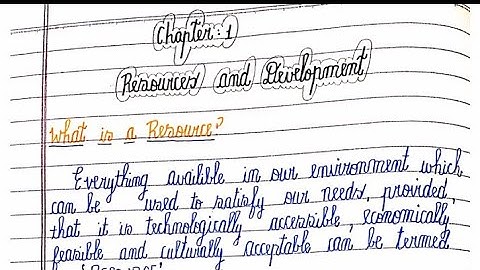 Chapter: 1
Resources and Development
What is a Resource?
Everything availble in our environment which
can be used to satisfy our needs, provided,
that it is technologically accessible, economically
feasible and culturally acceptable can be termed